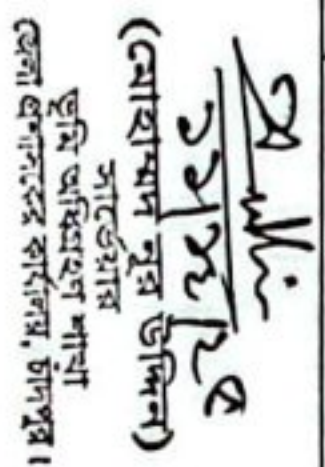 ১১/১২/২৫
(মোহাম্মদ নুর উদ্দিন)
সার্ভেয়ার
ভূমি অধিগ্রহণ শাখা
জেলা প্রশাসকের কার্যালয়, চাঁদপুর।